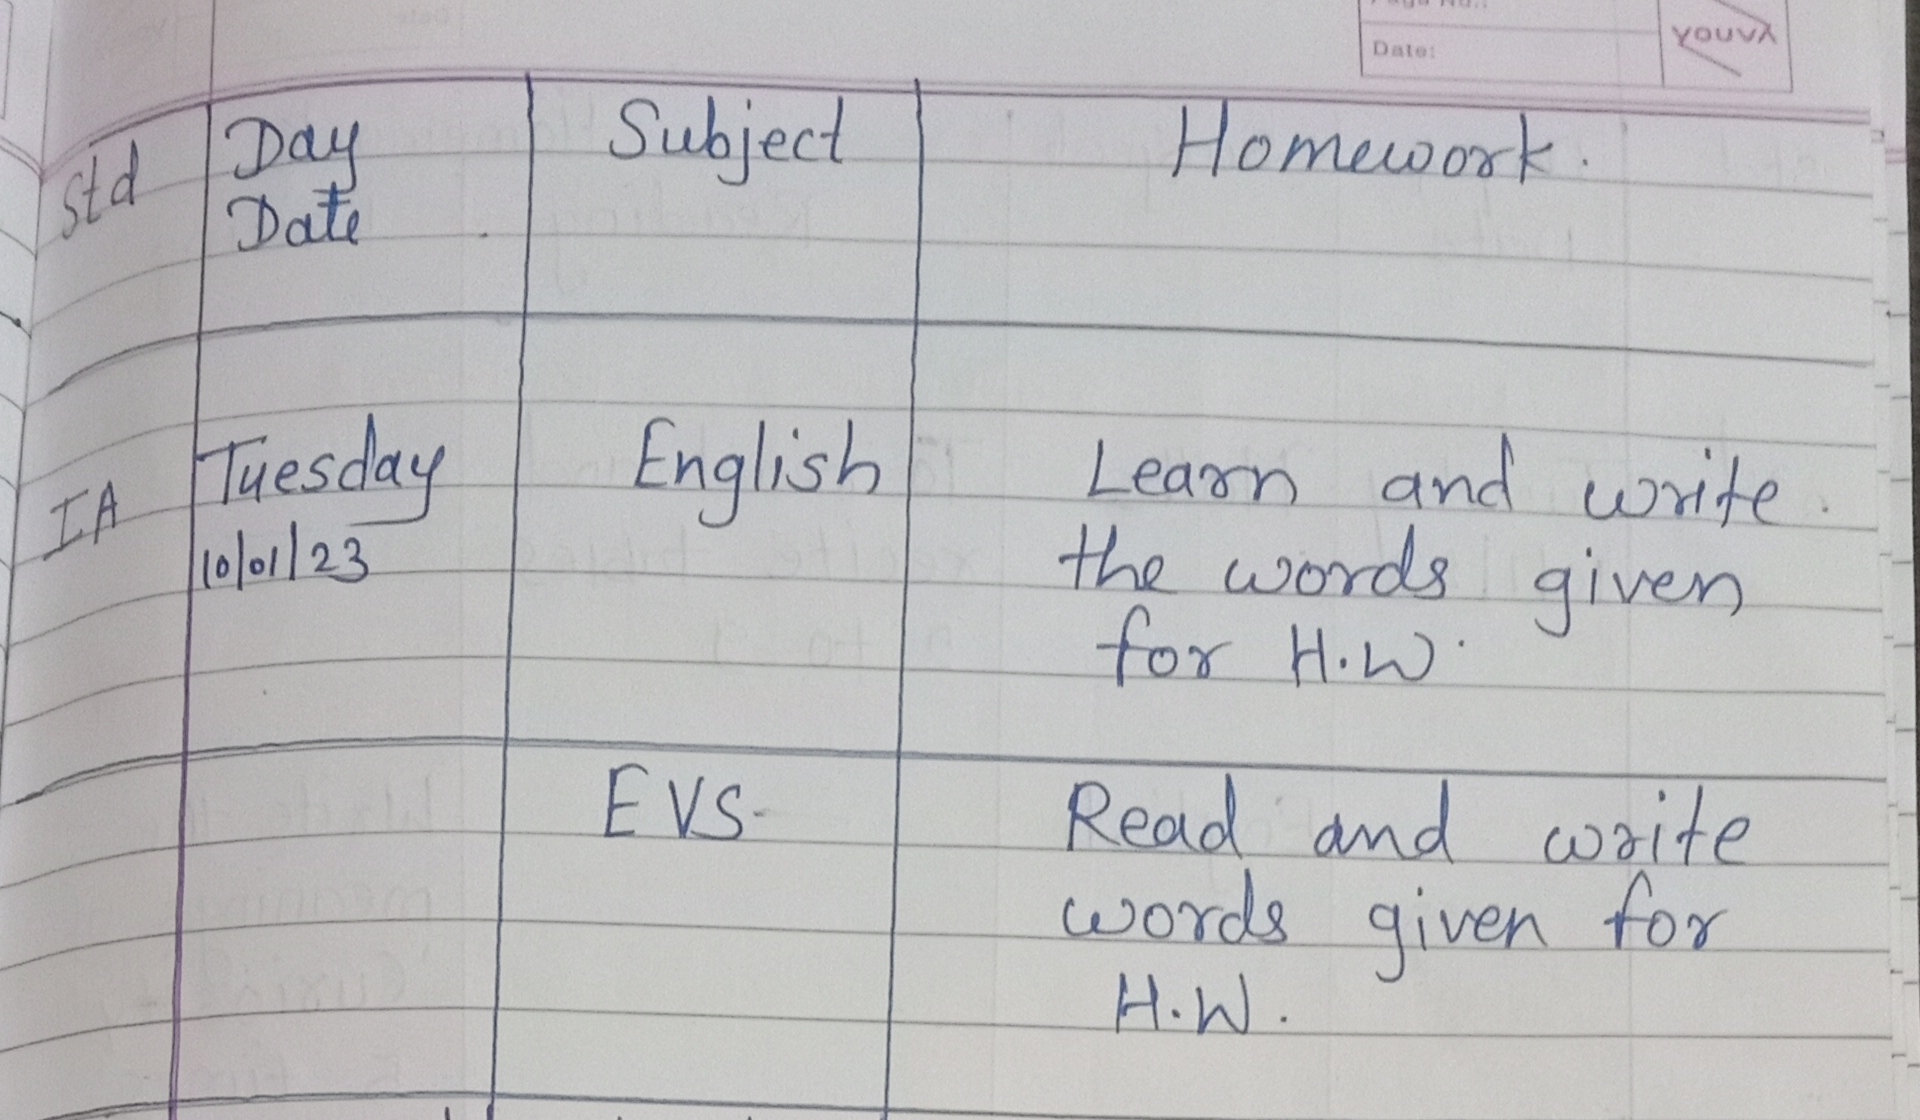 Date:
YOUVA
Std Day Subject Homework.
Date
IA Tuesday English Learn and write
10/01/23 the words given
for H.W.
EVS- Read and write
words given for
H.W.